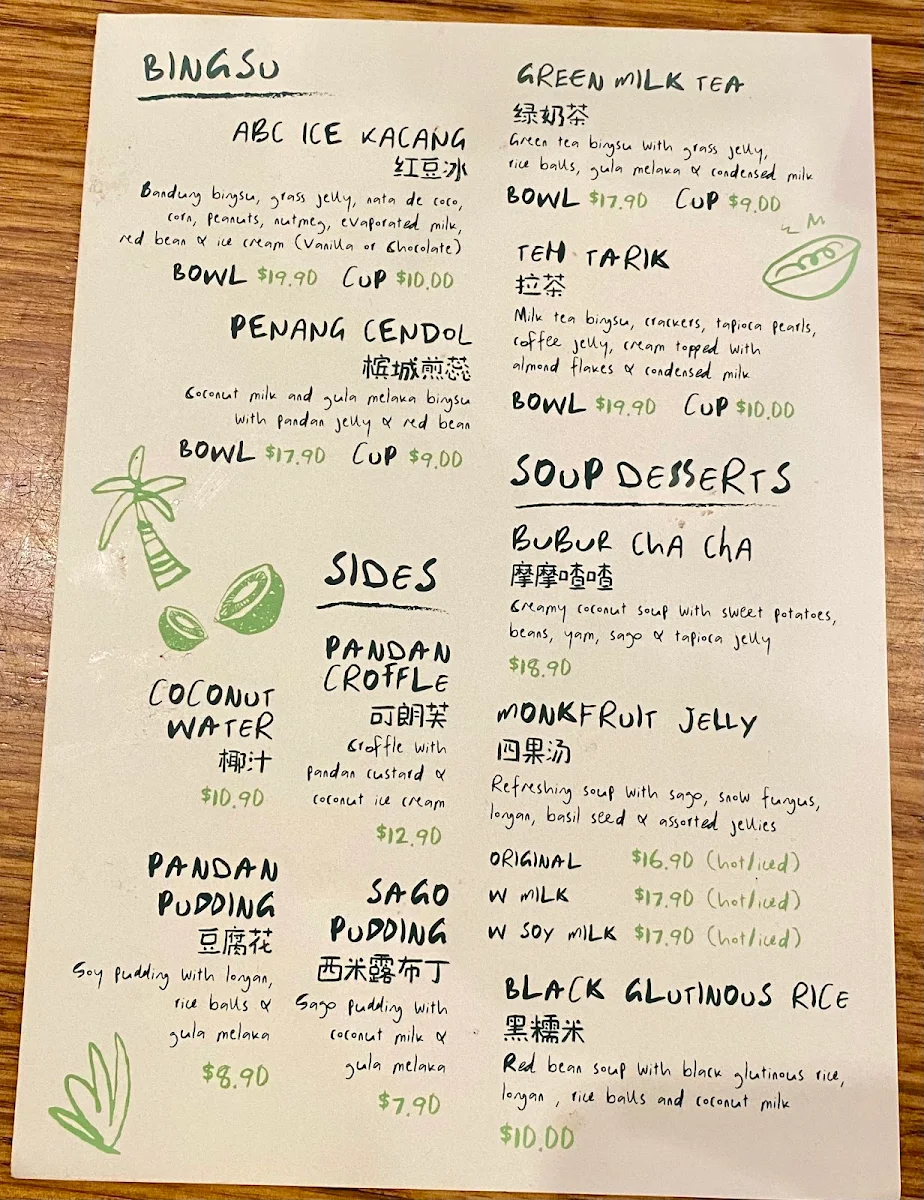 BINGSU
ABC ICE KACANG
红豆冰
Bandung bingsu, grass jelly, nata de coco,
corn, peanuts, nutmeg, evaporated milk,
red bean & ice cream (Vanilla or Chocolate)
BOWL $19.90 CUP $10.00
PENANG CENDOL
槟城煎蕊
Coconut milk and gula melaka bingsu
with pandan jelly & red bean
BOWL $17.90 CUP $9.00
SIDES
COCONUT
WATER
椰汁
$10.90
PANDAN
CROFFLE
可朗芙
Croffle with
pandan custard &
coconut ice cream
$12.90
PANDAN
PUDDING
豆腐花
Soy pudding with longan,
rice balls &
gula melaka
$8.90
SAGO
PUDDING
西米露布丁
Sago pudding with
coconut milk &
gula melaka
$7.90
GREEN MILK TEA
绿奶茶
Green tea bingsu with grass jelly,
rice balls, gula melaka & condensed milk
BOWL $17.90 CUP $9.00
TEH TARIK
拉茶
Milk tea bingsu, crackers, tapioca pearls,
coffee jelly, cream topped with
almond flakes & condensed milk
BOWL $19.90 CUP $10.00
SOUP DESSERTS
BUBUR CHA CHA
摩摩喳喳
Creamy coconut soup with sweet potatoes,
beans, yam, sago & tapioca jelly
$18.90
MONKFRUIT JELLY
四果汤
Refreshing soup with sago, snow fungus,
longan, basil seed & assorted jellies
ORIGINAL $16.90 (hot/iced)
W MILK $17.90 (hot/iced)
W SOY MILK $17.90 (hot/iced)
BLACK GLUTINOUS RICE
黑糯米
Red bean soup with black glutinous rice,
longan , rice balls and coconut milk
$10.00